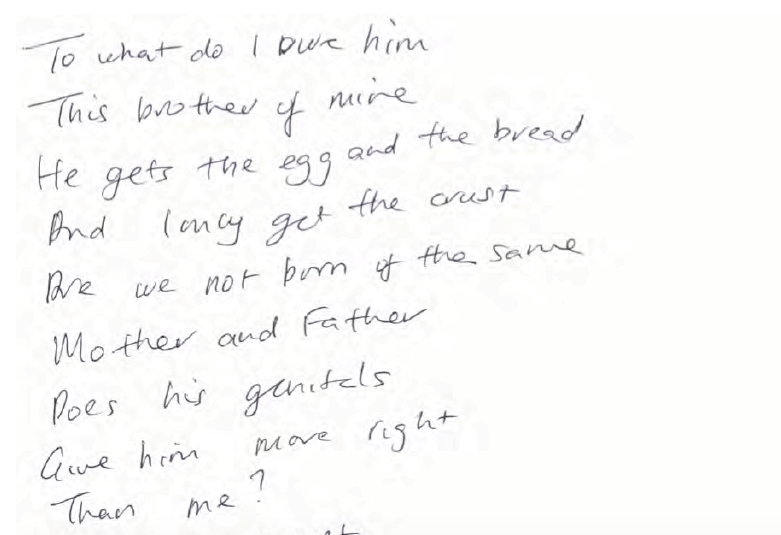 To what do I owe him
This brother of mine
He gets the egg and the bread
And I only get the crust
Are we not born of the same
Mother and Father
Does his genitals
Give him more right
Than me?